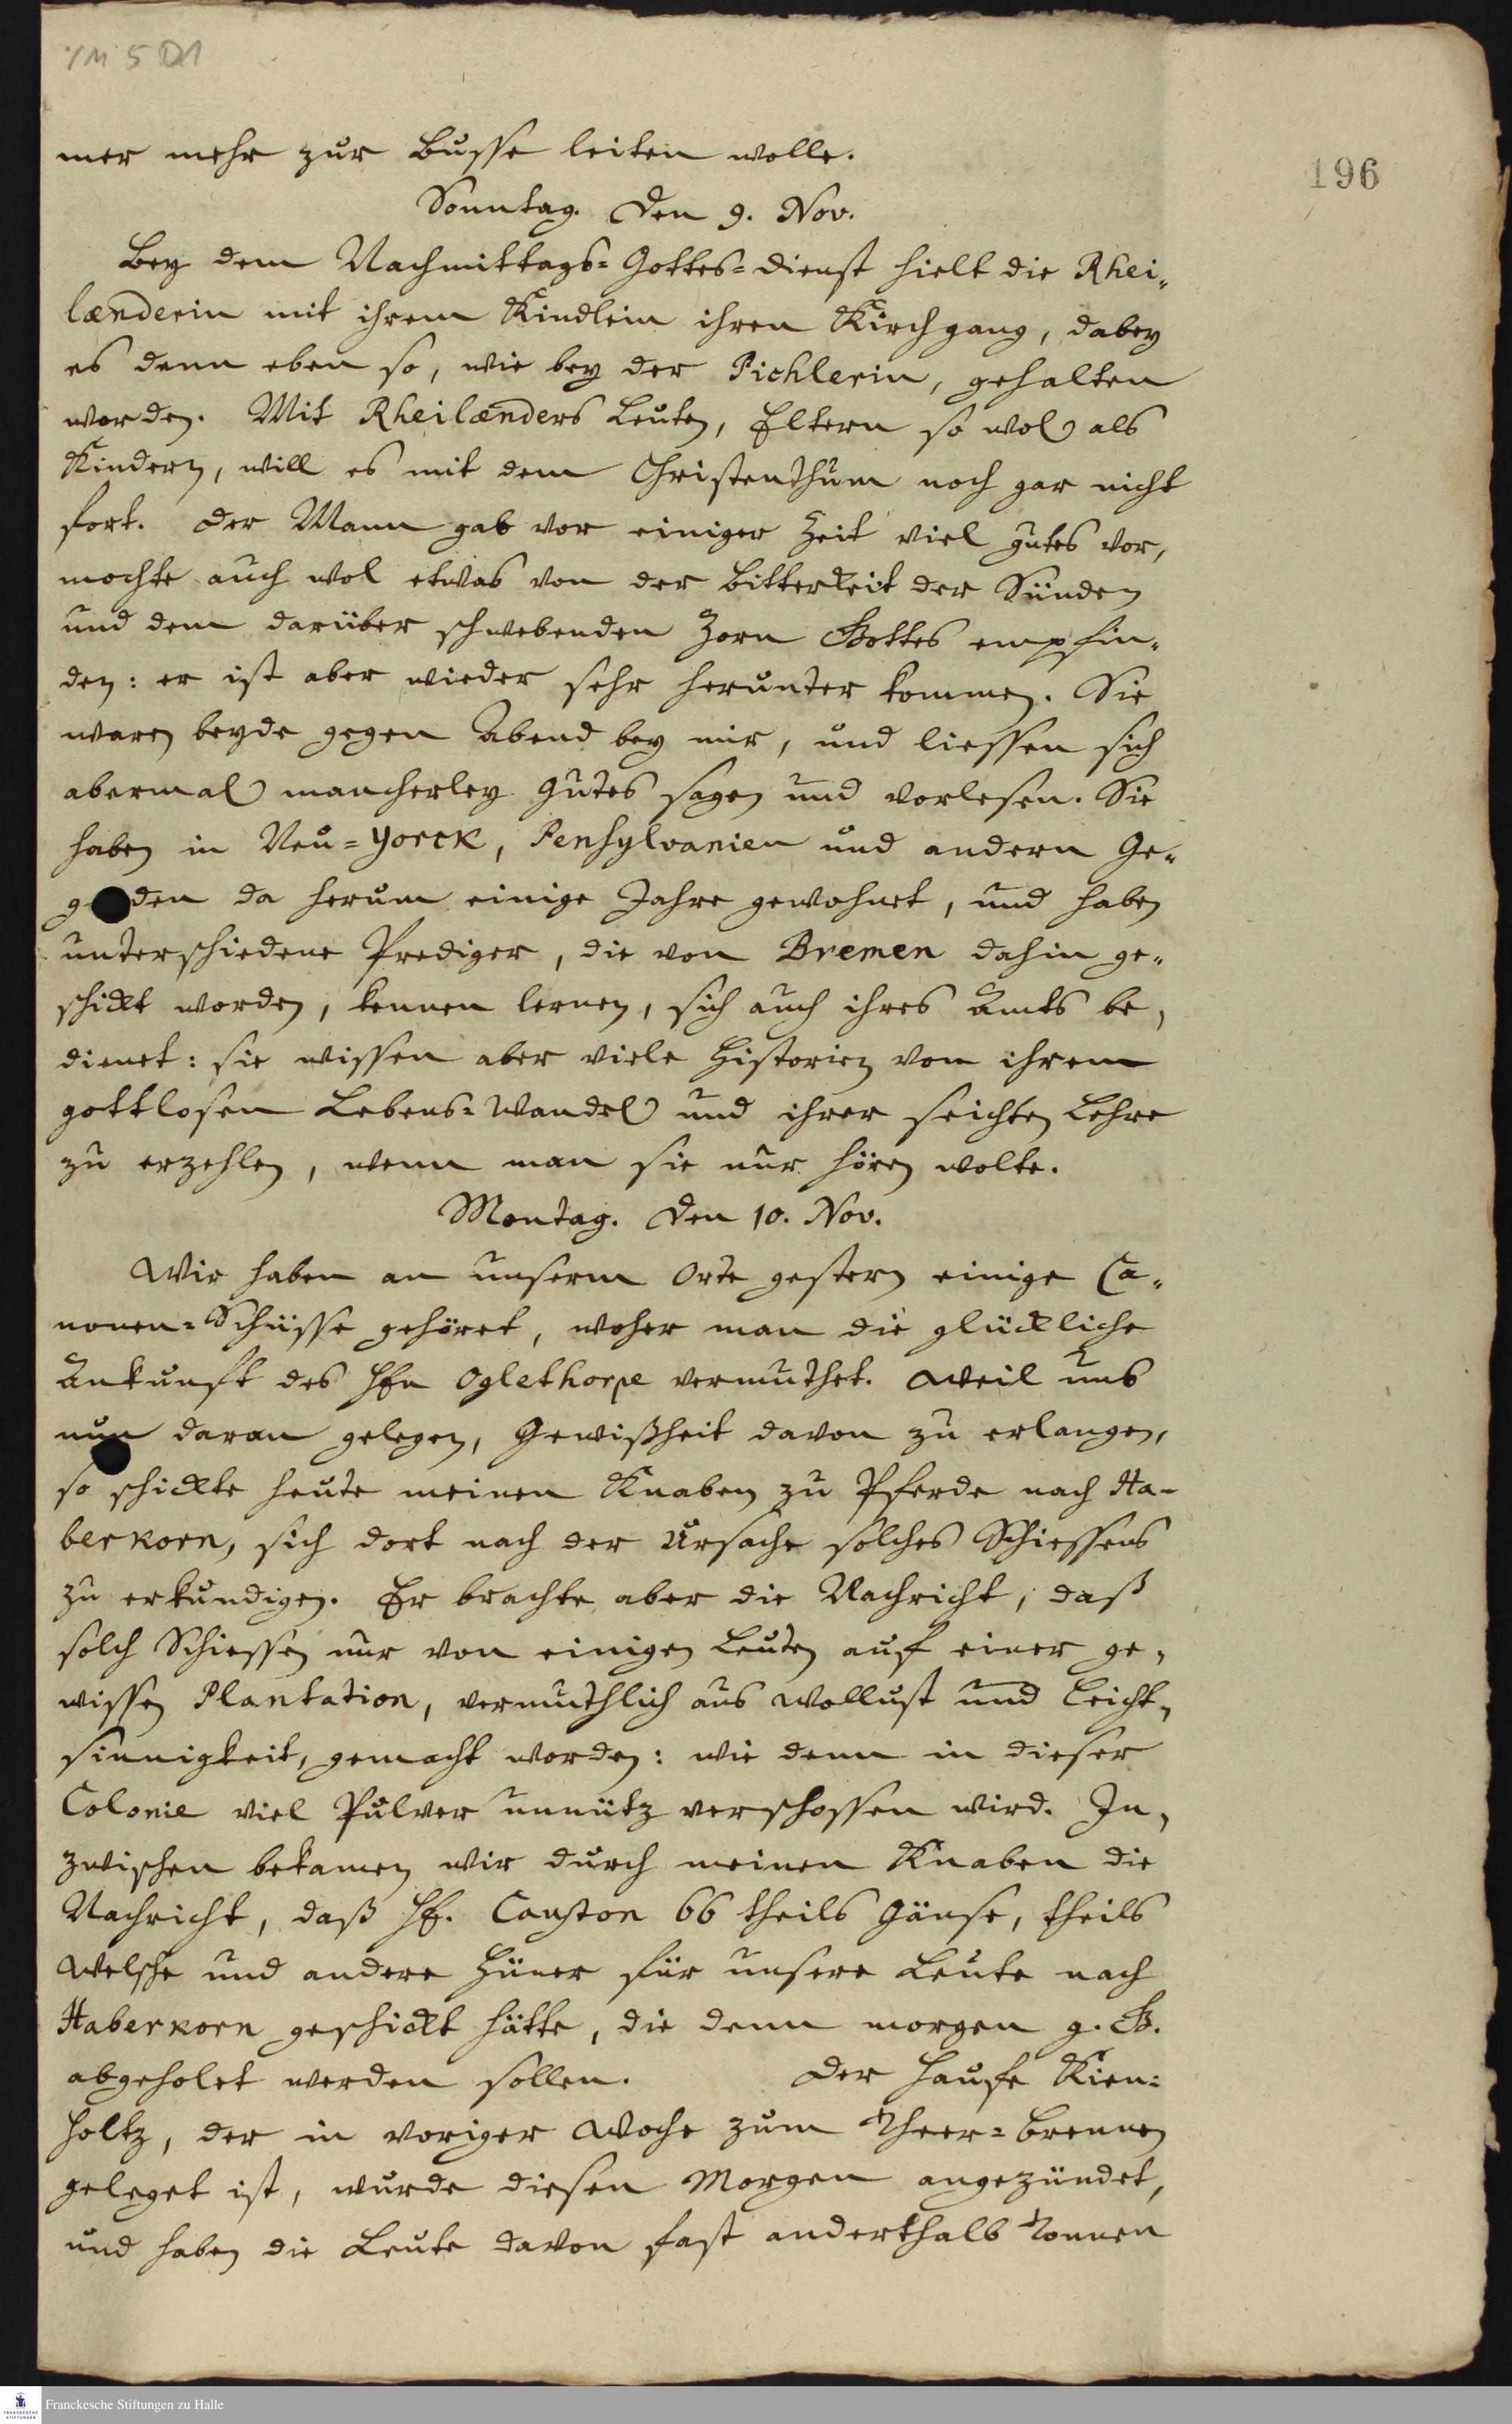 /M 5 D1
196
mer mehr zur Busse leiten wolle.
Sonntag. Den 9. Nov.
Bey dem Nachmittags=Gottes=dienst hielt die Rhei-
lænderin mit ihrem Kindlein ihren Kirchgang, dabey
es denn eben so, wie bey der Pichlerin, gehalten
worden. Mit Rheilænders Leuten, Eltern so wol als
Kindern, will es mit dem Christenthum noch gar nicht
fort. Der Mann gab vor einiger Zeit viel gutes vor,
mochte auch wol etwas von der Bitterkeit der Sünden
und dem darüber schwebenden Zorn Gottes empfin-
den: er ist aber wieder sehr herunter kommen. Sie
waren beyde gegen Abend bey mir, und liessen sich
abermal mancherley Gutes sagen und vorlesen. Sie
haben in Neu=Yorck, Pensylvanien und andern Ge-
genden da herum einige Jahre gewohnet, und haben
unterschiedene Prediger, die von Bremen dahin ge-
schickt worden, kennen lernen, sich auch ihres Amts be-
dienet: sie wissen aber viele Historien von ihrem
gottlosen Lebens=Wandel und ihrer seichten Lehre
zu erzehlen, wenn man sie nur hören wolte.
Montag. Den 10. Nov.
Wir haben an unserm Orte gestern einige Ca-
nonen=Schüsse gehöret, woher man die glückliche
Ankunft des Hhn Oglethorpe vermuthet. Weil uns
nun daran gelegen, Gewißheit davon zu erlangen,
so schickte heute meinen Knaben zu Pferde nach Ha-
berkorn, sich dort nach der Ursache solches Schiessens
zu erkundigen. Er brachte aber die Nachricht, daß
solch Schiessen nur von einigen Leuten auf einer ge-
wissen Plantation, vermuthlich aus Wollust und Leicht-
sinnigkeit, gemacht worden: wie denn in dieser
Colonie viel Pulver unnütz verschossen wird. In-
zwischen bekamen wir durch meinen Knaben die
Nachricht, daß Hh. Causton 66 theils Gänse, theils
Welsche und andere Hüner für unsere Leute nach
Haberkorn geschickt hätte, die denn morgen g. G.
abgeholet werden sollen. Der Haufe Kien=
holtz, der in voriger Woche zum Theer=Brennen
geleget ist, wurde diesen Morgen angezündet,
und haben die Leute davon fast anderthalb Tonnen
Franckesche Stiftungen zu Halle